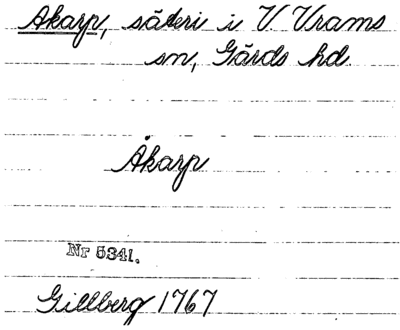 Åkarp, säteri i V. Vrams
sn, Gärds hd.
Åkarp
Nr 5341.
Gillberg 1767